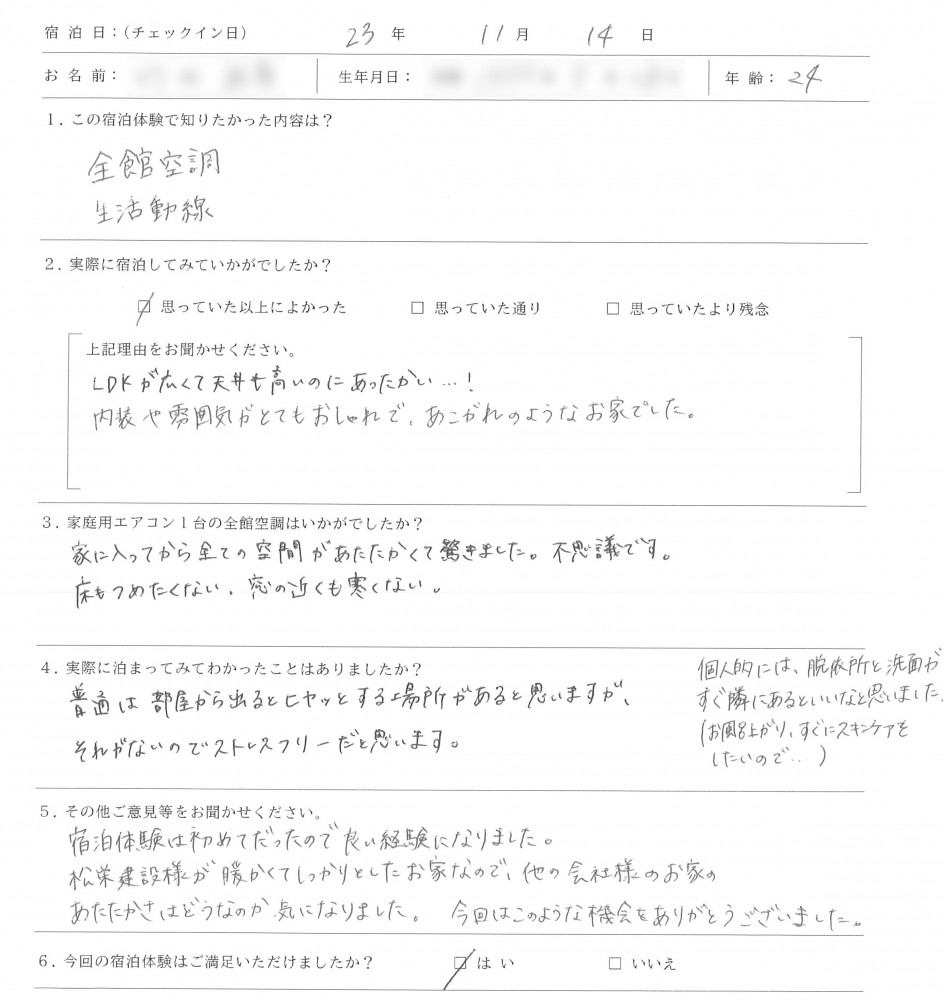 宿泊日：(チェックイン日) 23年 11月 14日
お名前： 生年月日： 年齢：24
1. この宿泊体験で知りたかった内容は？
全館空調
生活動線
2. 実際に宿泊してみていかがでしたか？
☑ 思っていた以上によかった □ 思っていた通り □ 思っていたより残念
上記理由をお聞かせください。
LDKが広くて天井も高いのにあったかい…！
内装や雰囲気がとてもおしゃれで、あこがれのようなお家でした。
3. 家庭用エアコン1台の全館空調はいかがでしたか？
家に入ってから全ての空間があたたかくて驚きました。不思議です。
床もつめたくない、窓の近くも寒くない。
4. 実際に泊まってみてわかったことはありましたか？
普通は部屋から出るとヒヤッとする場所があると思いますが、
それがないのでストレスフリーだと思います。
個人的には、脱衣所と洗面が
すぐ隣にあるといいなと思いました。
(お風呂上がり、すぐにスキンケアを
したいので…)
5. その他ご意見等をお聞かせください。
宿泊体験は初めてだったので良い経験になりました。
松栄建設様が暖かくてしっかりとしたお家なので、他の会社様のお家の
あたたかさはどうなのか気になりました。 今回はこのような機会をありがとうございました。
6. 今回の宿泊体験はご満足いただけましたか？ ☑ はい □ いいえ